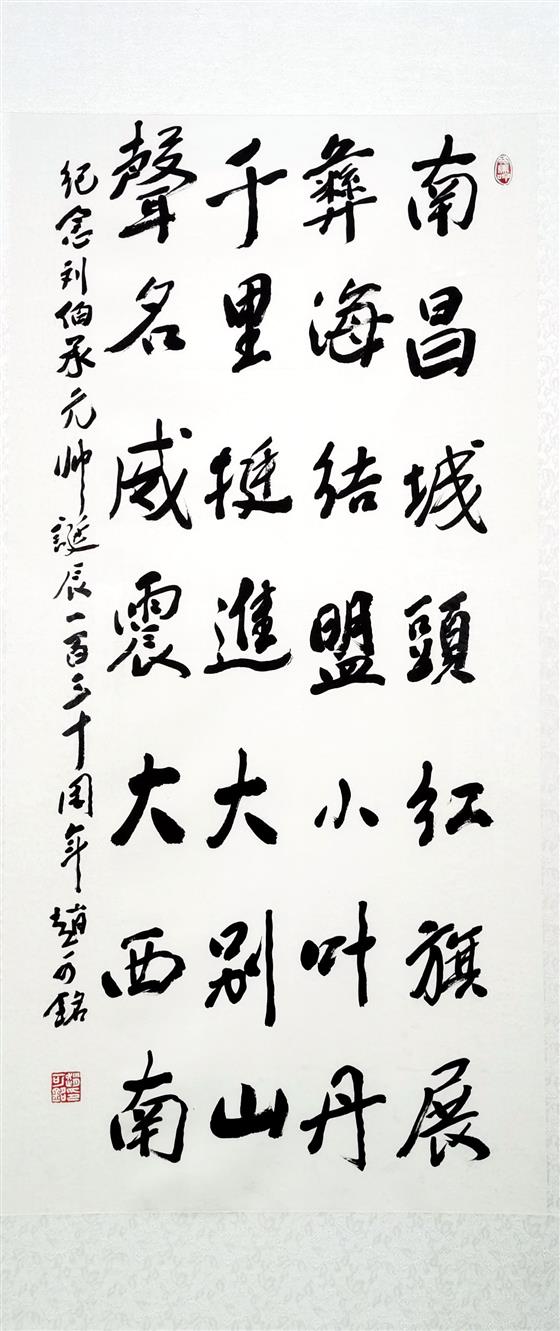 南昌城頭红旗展
彝海结盟小叶丹
千里挺進大别山
聲名威震大西南
纪念刘伯承元帅誕辰一百三十周年 趙可銘